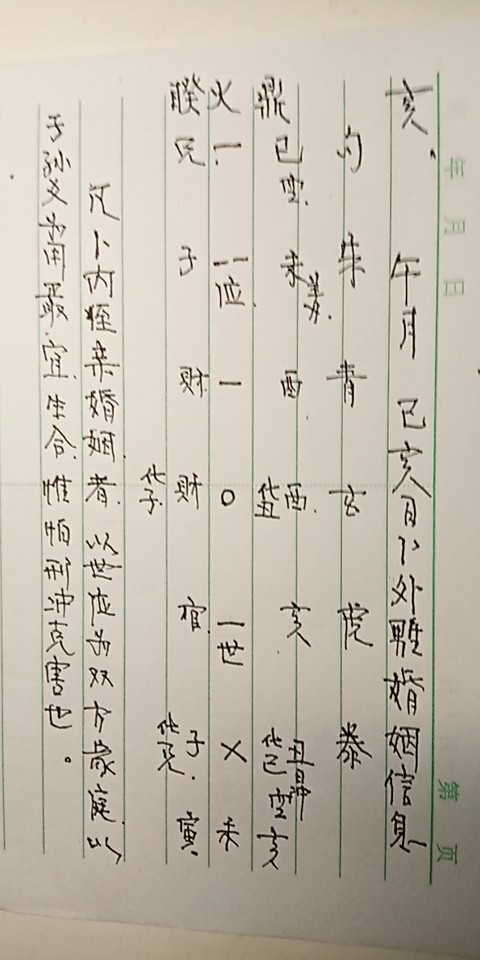 年 月 日 第 页
亥、 午月 己亥日卜外甥婚姻信息
勾 朱 青 玄 虎
鼎 巳空、 未 酉、 酉、化丑 亥 丑 化巳空 亥
火 一 一位、 一 〇 一世 X 未
睽 兄 子 财 财化子、 官、 子、化兄 寅
凡卜内侄亲婚姻者、以世位为双方家庭、以
子孙爻为用最宜生合、惟怕刑冲克害也。